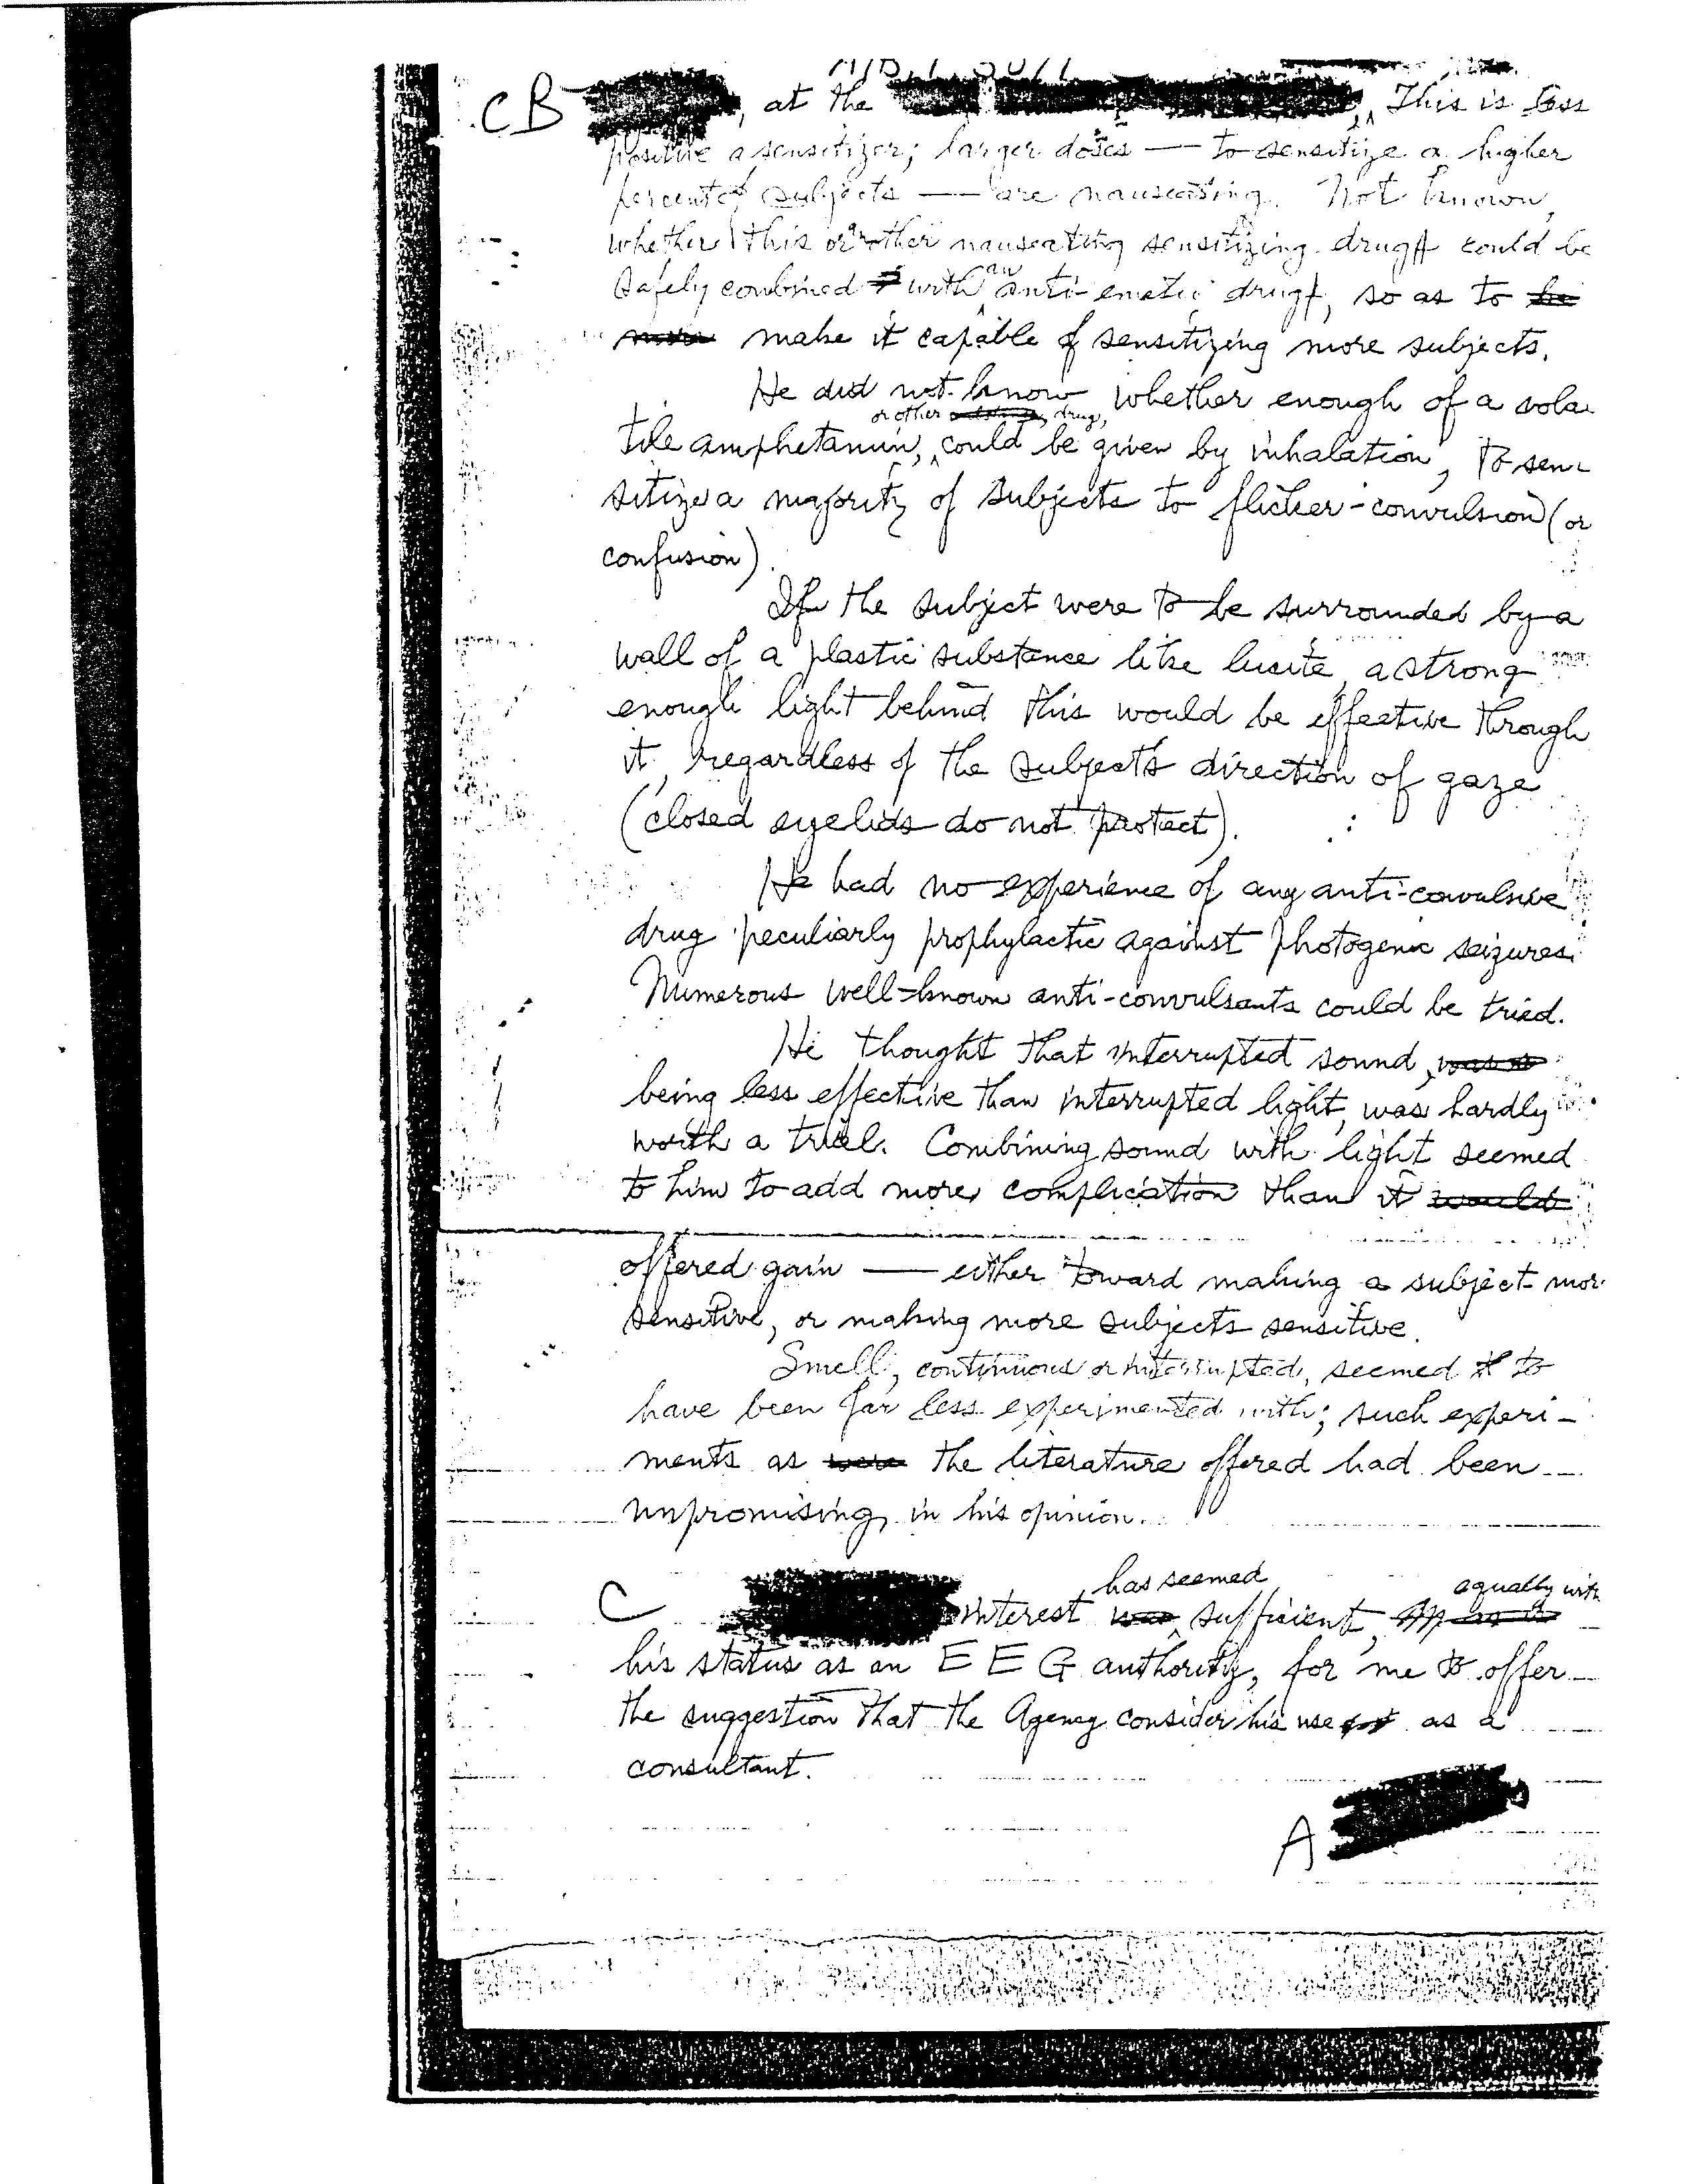 CB , at the This is less
positive a sensitizer; larger doses — to sensitize a higher
percent of subjects — are nauseating. Not known,
whether this or another nauseating sensitizing drug could be
safely combined with an anti-emetic drug, so as to be
more make it capable of sensitizing more subjects.
He did not know, whether enough of a vola
or other drug,
tile amphetamin, could be given by inhalation, to sen-
sitize a majority of subjects to flicker-convulsion (or
confusion).
If the subject were to be surrounded by a
wall of a plastic substance like lucite, a strong
enough light behind this would be effective through
it, regardless of the subject's direction of gaze
(closed eyelids do not protect).
He had no experience of any anti-convulsive
drug peculiarly prophylactic against photogenic seizures.
Numerous well-known anti-convulsants could be tried.
He thought that interrupted sound, was
being less effective than interrupted light, was hardly
worth a trial. Combining sound with light seemed
to him to add more complication than it would
offered gain — either toward making a subject mor
sensitive, or making more subjects sensitive.
Smell, continuous or interrupted, seemed to
have been far less experimented with; such experi-
ments as were the literature offered had been
unpromising, in his opinion.
has seemed equally with
C interest was sufficient,
his status as an EEG authority, for me to offer
the suggestion that the Agency consider his use for as a
consultant.
A